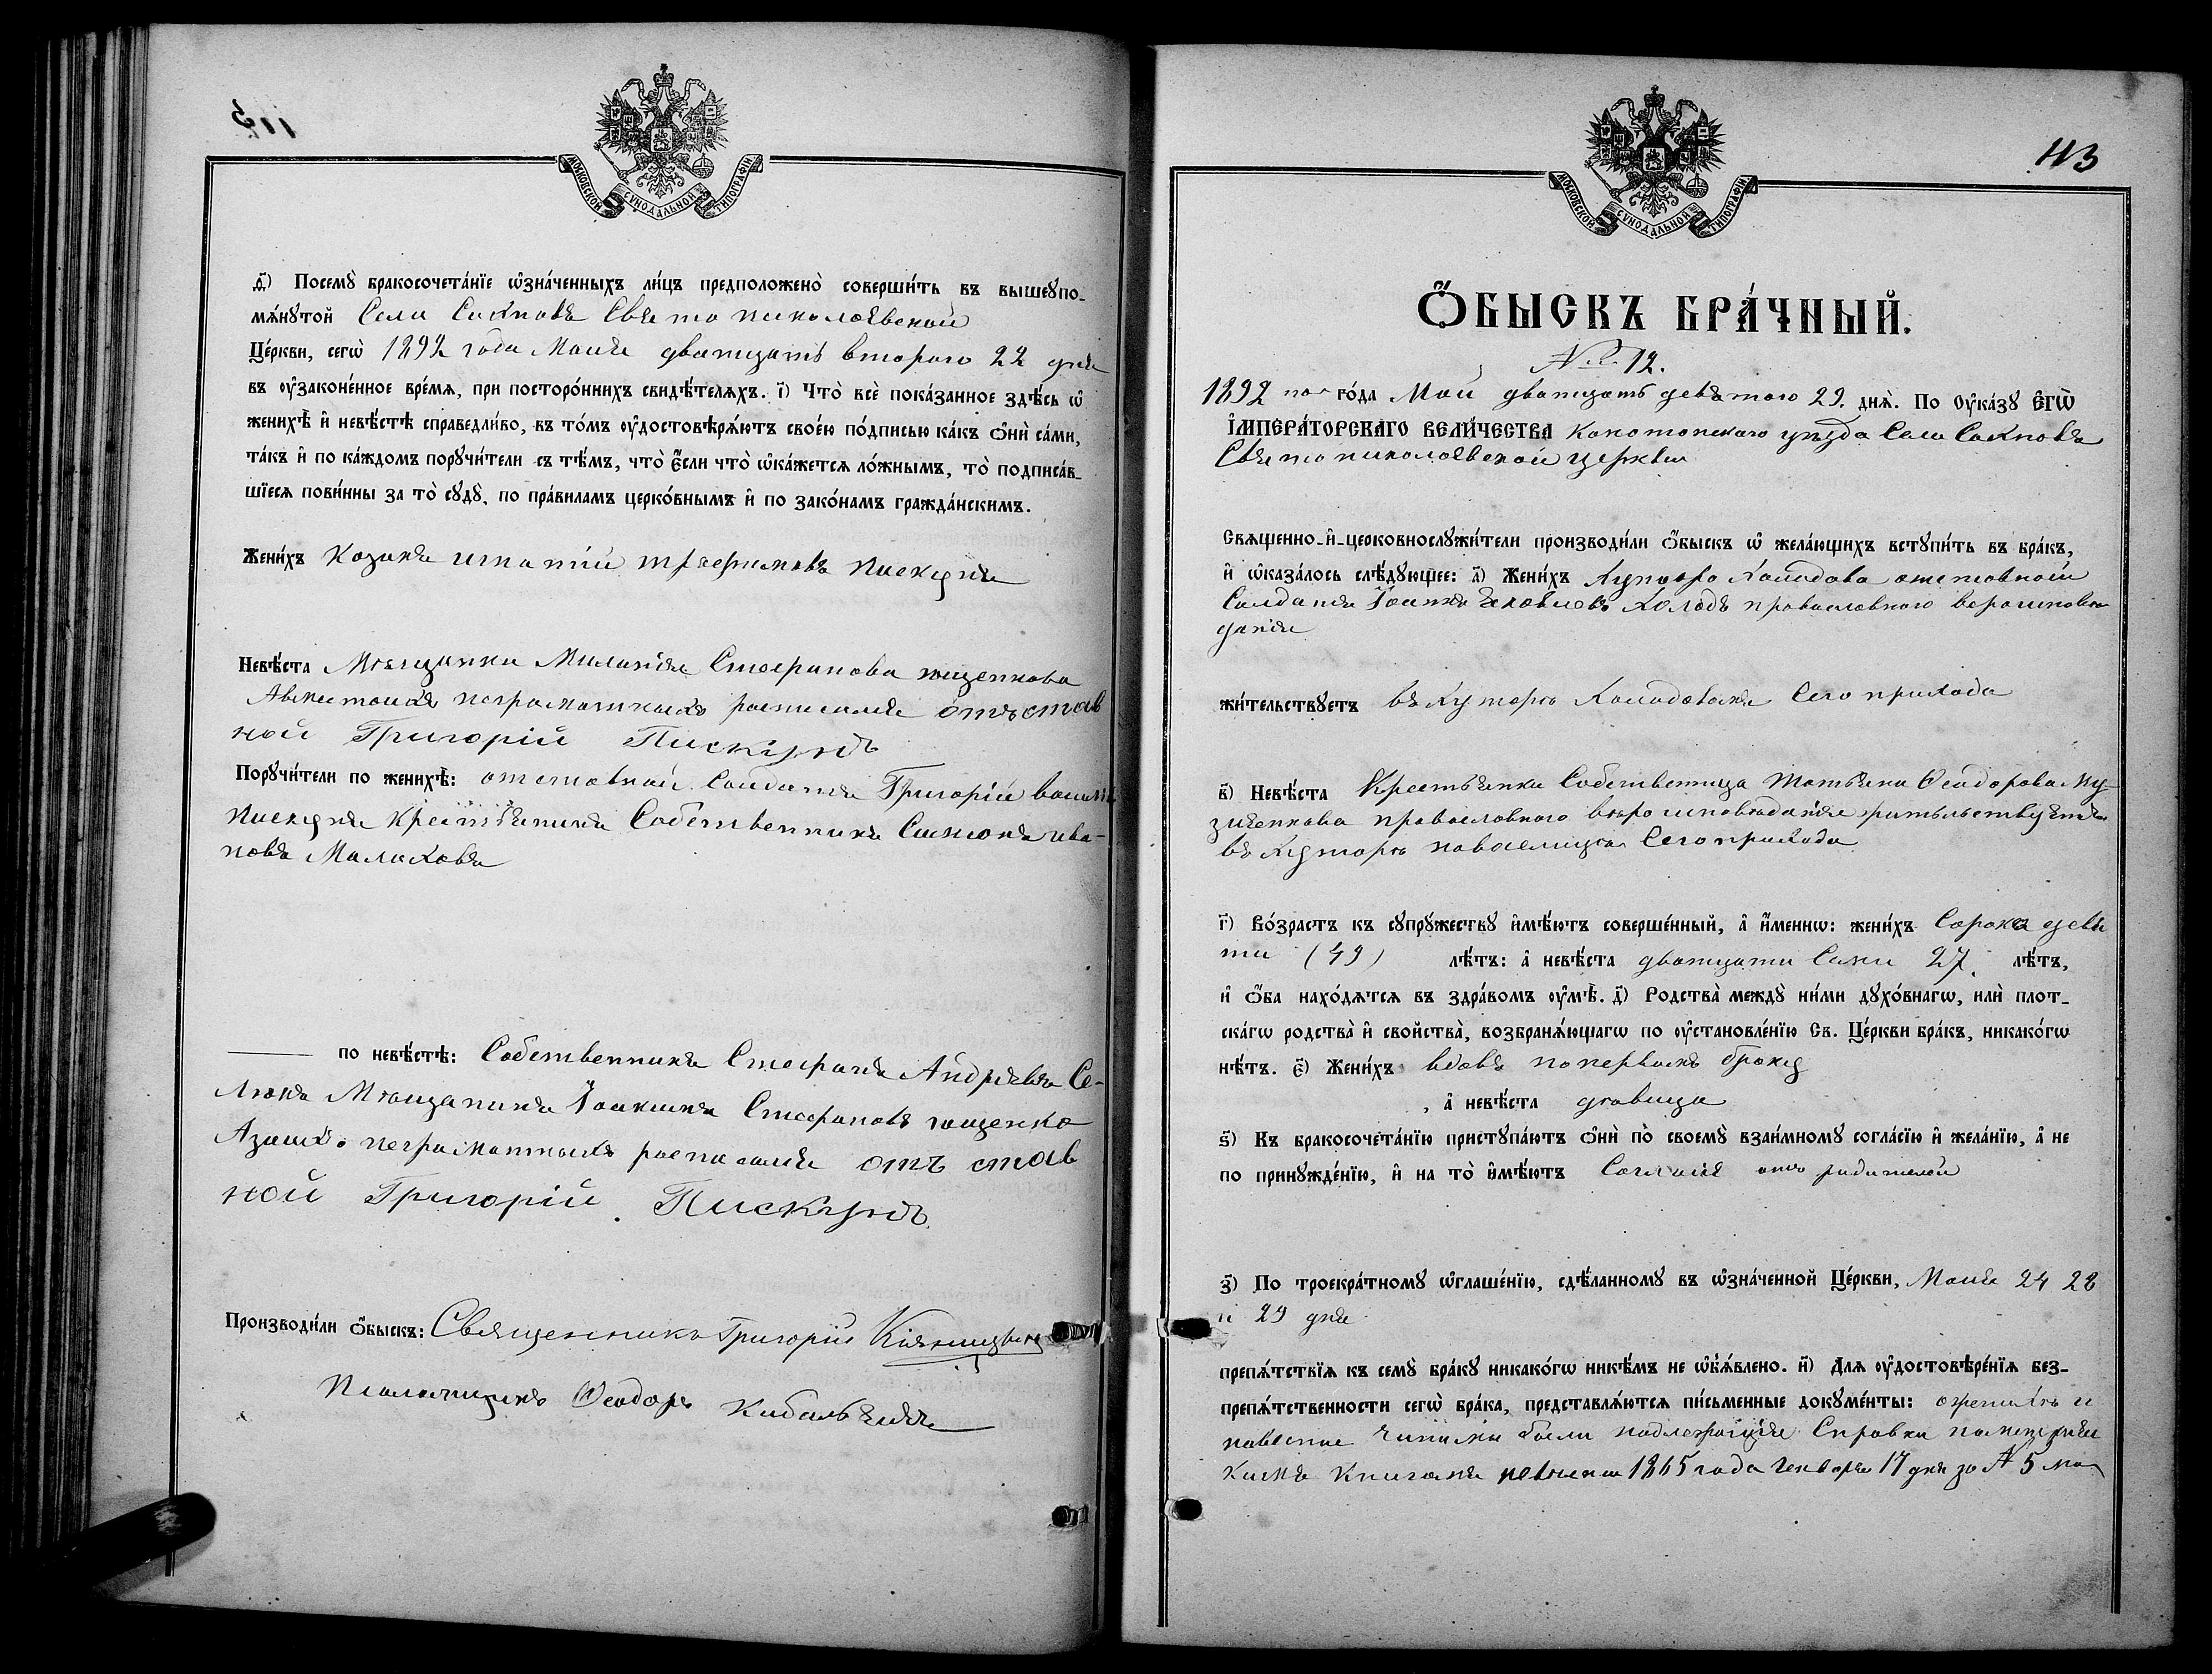 МОСКОВСКОЙ СУНОДАЛЬНОЙ ТИПОГРАФІИ
д҃і) Посемꙋ̀ бракосочета́нїе ѡ҆зна́ченныхъ ли́цъ предположено̀ соверши́ть въ вышеꙋпо-
мѧ́нꙋтой Села Сахновъ Свято николаевской
Це́ркви, сегѡ̀ 1892 года Маия дватцать второго 22 дня
въ ᲂу҆законе́нное вре́мѧ, при посторо́ннихъ свидѣ́телѧхъ. і҃) Что̀ всѐ пока́занное здѣ́сь ѡ҆
женихѣ̀ и҆ невѣ́стѣ справедли́во, въ то́мъ ᲂу҆достовѣрѧ́ютъ свое́ю по́дписью ка́къ ѻ҆нѝ са́ми,
та́къ и҆ по ка́ждомъ порꙋчи́тели съ тѣ́мъ, что̀ є҆́сли что̀ ѡ҆ка́жетсѧ ло́жнымъ, то̀ подписа́в-
шїесѧ пови́нны за то̀ сꙋдꙋ̀, по пра́виламъ церко́внымъ и҆ по зако́намъ гражда́нскимъ.
Жени́хъ Козакъ игнатий трефимовъ пискунъ
Невѣ́ста Мещанка Миланія Стефанова
неграмотныхъ росписался отъстав
ной Григорій Пискунъ
Порꙋчи́тели по женихѣ̀: отставной Солдатъ Григорій
пискунъ Крестьянинъ Собственникъ Симіонъ ива-
новъ Малаховъ
по невѣ́стѣ: Собственникъ Стефанъ Андріевъ Се-
люкъ Мещанинъ Іоакимъ Стефановъ
неграмотныхъ росписался отъ став
ной Григорій Пискунъ
Производи́ли ѻ҆́быскъ: Священникъ Григорій
Псаломщикъ Ѳеодоръ Кибальчичъ
113
МОСКОВСКОЙ СУНОДАЛЬНОЙ ТИПОГРАФІИ
Ѻ҆БЫСКЪ БРА́ЧНЫЙ.
№ 12.
1892 го́да Май дватцать девятого 29. днѧ̀. По Оу҆ка́зꙋ Є҆ГѠ̀
І҆МПЕРА́ТОРСКАГО ВЕЛИ́ЧЕСТВА Конотопского уезда Села Сахновъ
Свято николаевской церкви
Свѧщенно-и҆-церковнослꙋжи́тели производи́ли ѻ҆́быскъ ѡ҆ жела́ющихъ встꙋпи́ть въ бра́къ,
и҆ ѡ҆каза́лось слѣ́дꙋющее: а҃) Жени́хъ Хутора отставной
Солдатъ Іоаннъ Яковлевъ Холодъ православного вероисповѣ-
данія
жи́тельствꙋетъ въ Хуторѣ сего прихода
в҃) Невѣ́ста Крестьянка Собственница татьяна Ѳеодорова
православного вѣроисповѣданія жительствуетъ
въ Хуторѣ сего прихода
г҃) Во́зрастъ къ сꙋпрꙋ́жествꙋ и҆мѣ́ютъ соверше́нный, а҆ и҆́меннѡ: жени́хъ Сорокъ девѧ
ти (49) лѣ́тъ: а҆ невѣ́ста дватцати Семи 27. лѣ́тъ,
и҆ ѻ҆́ба нахо́дѧтсѧ въ здра́вомъ ᲂу҆мѣ̀. д҃) Родства̀ междꙋ̀ ни́ми дꙋхо́внагѡ, илѝ плот-
ска́гѡ родства̀ и҆ свойства̀, возбранѧ́ющагѡ по ᲂу҆становле́нїю Св. Це́ркви бра́къ, никако́гѡ
нѣ́тъ. є҃) Жени́хъ вдовъ по первомъ браку
, а҆ невѣ́ста девица
ѕ҃) Къ бракосочета́нїю пристꙋпа́ютъ ѻ҆нѝ по̀ своемꙋ̀ взаи́мномꙋ согла́сїю и҆ жела́нїю, а҆ не
по принꙋжде́нїю, и҆ на то̀ и҆мѣ́ютъ Согласіе отъ родителей
з҃) По троекра́тномꙋ ѡ҆глаше́нїю, сдѣ́ланномꙋ въ ѡ҆зна́ченной Це́ркви, Маия 24 28
и 29 дня
препѧ́тствїѧ къ семꙋ̀ бра́кꙋ никако́гѡ никѣ́мъ не ѡ҆б̾ѧ́влено. и҃) Длѧ ᲂу҆достовѣре́нїѧ без-
препѧ́тственности сегѡ̀ бра́ка, представлѧ́ютсѧ пи́сьменные докꙋме́нты: о женихѣ и
невестѣ были надлежащія Справки по метриче
скимъ книгамъ 1865 года генваря 17 дня за № 5